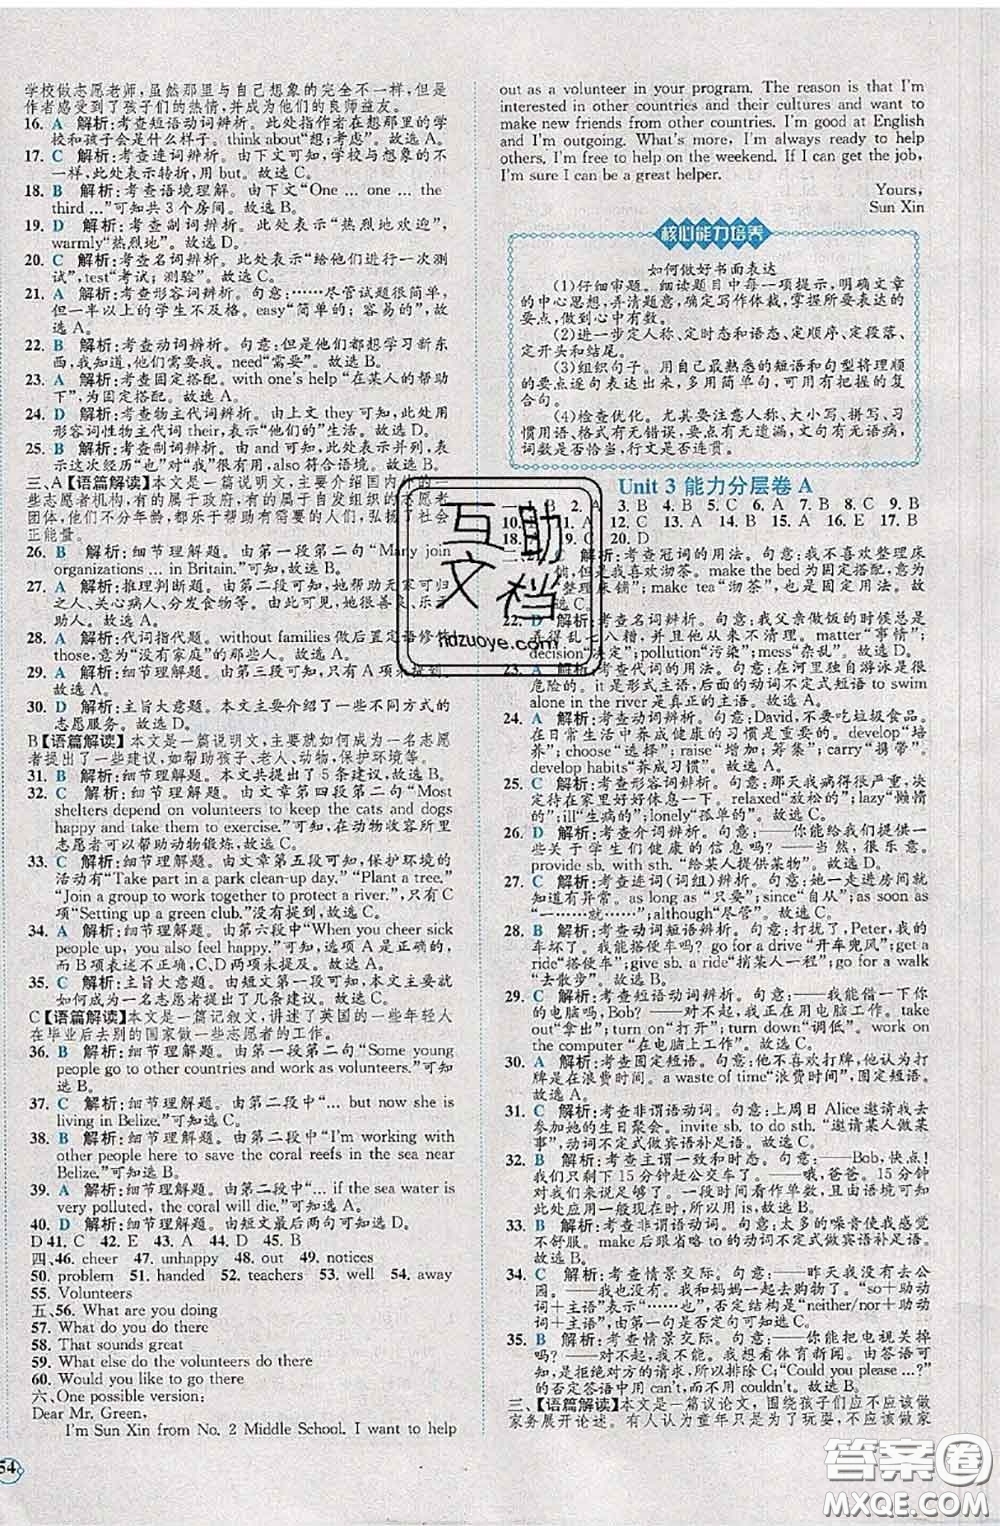 学校做志愿老师，虽然那里与自己想象的完全不一样，但是
作者感受到了孩子们的热情，并成为他们的良师益友。
16. A 解析：考查短语动词辨析。此处指作者在想那里的学
校和孩子会是什么样子。think about“想；考虑”。故选 A。
17. C 解析：考查连词辨析。由下文可知，学校与想象的不
一样，此处表示转折，用 but。故选 C。
18. B 解析：考查语境理解。由下文“One ... one ... the
third ...”可知共 3 个房间。故选 B。
19. D 解析：考查副词辨析。此处表示“热烈地欢迎”，
warmly“热烈地”。故选 D。
20. C 解析：考查名词辨析。此处表示“给他们进行一次测
试”，test“考试；测验”。故选 C。
21. A 解析：考查形容词辨析。句意：……尽管试题很简单，
但一半以上的学生不及格。easy“简单的；容易的”。故选 A。
22. B 解析：考查动词辨析。句意：但是他们都想学习新东
西，我知道，他们需要我。need“需要”。故选 B。
23. A 解析：考查固定搭配。with one's help“在某人的帮助
下”，为固定搭配。故选 A。
24. D 解析：考查物主代词辨析。由上文 they 可知，此处用
形容词性物主代词 their，表示“他们的”生活。故选 D。
25. B 解析：考查副词辨析。由 and 可知，此处表示并列，表
示这次经历也对我很有用，also 符合语境。故选 B。
三、A【语篇解读】本文是一篇说明文，主要介绍国内外的一
些志愿者机构，有的属于政府，有的属于自发组织的志愿者
团体，他们不分年龄，都可以帮助别人，弘扬了社会
正能量。
26. B 解析：细节理解题。由第一段第二句“Many join
organizations ... in Britain.”可知。故选 B。
27. A 解析：推理判断题。由第二段可知，她帮助无家可归
之人、关心病人、分发食物等。可推知，她很善良、乐于
助人。故选 A。
28. A 解析：代词指代题。without families 做后置定语修饰
those，意为“没有家庭”的那些人。故选 A。
29. A 解析：细节理解题。由第三段可知，只有 A 项未提到。
故选 A。
30. D 解析：主旨大意题。本文主要介绍了一些不同方式的
志愿服务。故选 D。
B【语篇解读】本文是一篇说明文，主要就如何成为一名志愿
者提出了一些建议，如帮助孩子、老人、动物，保护环境等。
31. B 解析：细节理解题。本文共提到了 5 条建议，故选 B。
32. C 解析：细节理解题。由文章第四段第二句“Most
shelters depend on volunteers to keep the cats and dogs
happy and take them to exercise.”可知，在动物收容所里
志愿者可以帮助动物锻炼。故选 C。
33. C 解析：细节理解题。由文章第五段可知，保护环境的
活动有“Take part in a park clean-up day.”“Plant a tree.”
“Join a group to work together to protect a river.”，只有 C
项“Setting up a green club.”没有提到。故选 C。
34. A 解析：细节理解题。由第六段中“When you cheer sick
people up, you also feel happy.”可知，选项 A 是正确的，
而 B 项是错误的，C、D 两项未提及。故选 A。
35. C 解析：主旨大意题。由短文第一段可知，本文主要对
如何成为一名志愿者提出了几条建议。故选 C。
C【语篇解读】本文是一篇记叙文，讲述了英国的一些年轻人
在毕业后去别的国家做一些志愿者的工作。
36. B 解析：细节理解题。由第一段第二句“Some young
people go to other countries and work as volunteers.”可
知选 B。
37. C 解析：细节理解题。由第二段中“... but now she is
living in Belize.”可知选 C。
38. B 解析：细节理解题。由第二段中“I'm working with
other people here to save the coral reefs in the sea near
Belize.”可知选 B。
39. A 解析：细节理解题。由第二段中“... if the sea water is
very polluted, the coral will die.”可知选 A。
40. D 解析：细节理解题。由短文最后两句可知选 D。
D 41. C 42. E 43. A 44. D 45. B
四、46. cheer 47. unhappy 48. out 49. notices
50. problem 51. handed 52. teachers 53. will 54. away
55. Volunteers
五、56. What are you doing
57. What do you do there
58. That sounds great
59. What else do the volunteers do there
60. Would you like to go there
六、One possible version:
Dear Mr. Green,
I'm Sun Xin from No. 2 Middle School. I want to help
54
out as a volunteer in your program. The reason is that I'm
interested in other countries and their cultures and want to
make new friends from other countries. I'm good at English
and I'm outgoing. What's more, I'm always ready to help
others. I'm free to help on the weekend. If I can get the job,
I'm sure I can be a great helper.
Yours,
Sun Xin
核心能力培养
如何做好书面表达
(1)仔细审题。细读题目中每一项提示，明确文章
的中心思想，弄清题意，确定写作体裁，掌握所要表达的
要点，做到心中有数。
(2)进一步定人称、定时态和语态、定顺序、定段落、
定开头和结尾。
(3)组织句子。用自己最熟悉的短语和句型将理顺
的要点逐句表达出来，多用简单句，可以适当使用复
合句。
(4)检查优化。尤其要注意人称、大小写、拼写、习
惯用语、格式有无错误，要点有无遗漏，文句有无语病，
词数是否恰当，行文是否连贯。
Unit 3 能力分层卷 A
一、1. B 2. A 3. B 4. B 5. A 6. A 7. B 8. C 9. B
10. 11. A 12. C 13. C 14. A 15. A 16. B 17. B
18. 19. C 20. D
二、21. 解析：考查冠词的用法。句意：我不喜欢整理床
铺，但是我喜欢沏茶。make the bed 为固定搭配，意为
“整理床铺”；make tea“沏茶”，也是固定用法。故选
22. D 解析：考查名词辨析。句意：我父亲做饭的时候总是
弄得乱七八糟，并且从来不清理。matter“事情”；
decision“决定”；pollution“污染”；mess“杂乱”。故选 D。
23. A 解析：考查代词的用法。句意：在河里独自游泳是很
危险的。it 是形式主语，后面的动词不定式短语 to swim
alone in the river 是真正的主语。故选 A。
24. A 解析：考查动词辨析。句意：David，不要吃垃圾食品。
在日常生活中养成健康的习惯是十分重要的。develop“发
展”；choose“选择”；raise“增加；筹集”；carry“携带”。
develop habits“养成习惯”。故选 A。
25. C 解析：考查形容词辨析。句意：那天我病得很严重，决
定待在家好好休息一下。relaxed“放松的”；lazy“懒惰
的”；ill“生病的”；lonely“孤单的”。故选 C。
26. D 解析：考查介词辨析。句意：——你能为我们提供一
些关于学生们健康的信息吗？——当然，很乐意。
provide sb. with sth.“给某人提供某物”。故选 D。
27. C 解析：考查连词(词组)辨析。句意：她一走进房间就
知道有异常。as long as“只要”；since“自从”；as soon as
“一……就……”；although“尽管”。故选 C。
28. B 解析：考查动词短语辨析。句意：——打扰了，Peter，我的
车坏了。我能搭你的车吗？go for a drive“开车兜风”；get a
ride“搭便车”；give sb. a ride“捎某人一程”；go for a walk
“去散步”。故选 B。
29. C 解析：考查短语动词辨析。句意：——我能借一下你
的电脑吗，Bob？——抱歉，我正在用电脑工作。take
out“拿出”；turn on“打开”；turn down“调低”。work on
the computer“在电脑上工作”。故选 C。
30. A 解析：考查固定短语。句意：他不喜欢打牌，他认为打
牌是在浪费时间。a waste of time“浪费时间”，固定短语。
故选 A。
31. C 解析：考查非谓语动词。句意：上周日 Alice 邀请我去
参加她的生日聚会。invite sb. to do sth.“邀请某人做某
事”，动词不定式做宾语补足语。故选 C。
32. B 解析：考查主谓一致和时态。句意：——Bob，快点！
我们只剩下十五分钟赶公交车了。——哦，爸爸。15 分钟
对我来说足够了。一段时间看作单数，且由语境可知
此处应用一般现在时，所以用 is。故选 B。
33. B 解析：考查非谓语动词。句意：太多的噪音使我感觉
不舒服。make 后跟省略 to 的动词不定式做宾语补足语。
故选 B。
34. C 解析：考查情景交际。句意：——昨天我没有去公
园。——我也没有。我和妈妈一起去购物了。“so＋助动
词＋主语”表示“……也”，否定结构是“neither/nor＋助动
词＋主语”。故选 C。
35. B 解析：考查情景交际。句意：——你能把电视关掉
吗？——对不起，我不能。我想看体育新闻。由答语可知，
是拒绝对方的请求，所以排除 C；“Could you please ...?”
的否定答语中用 can't 而不用 couldn't。故选 B。
三、【语篇解读】本文是一篇议论文，围绕孩子们应不应该做
家务展开论述。有人认为童年只是为了玩耍，不应该做家
互助文档
hdzuoye.com
答案圈
MXQE.COM